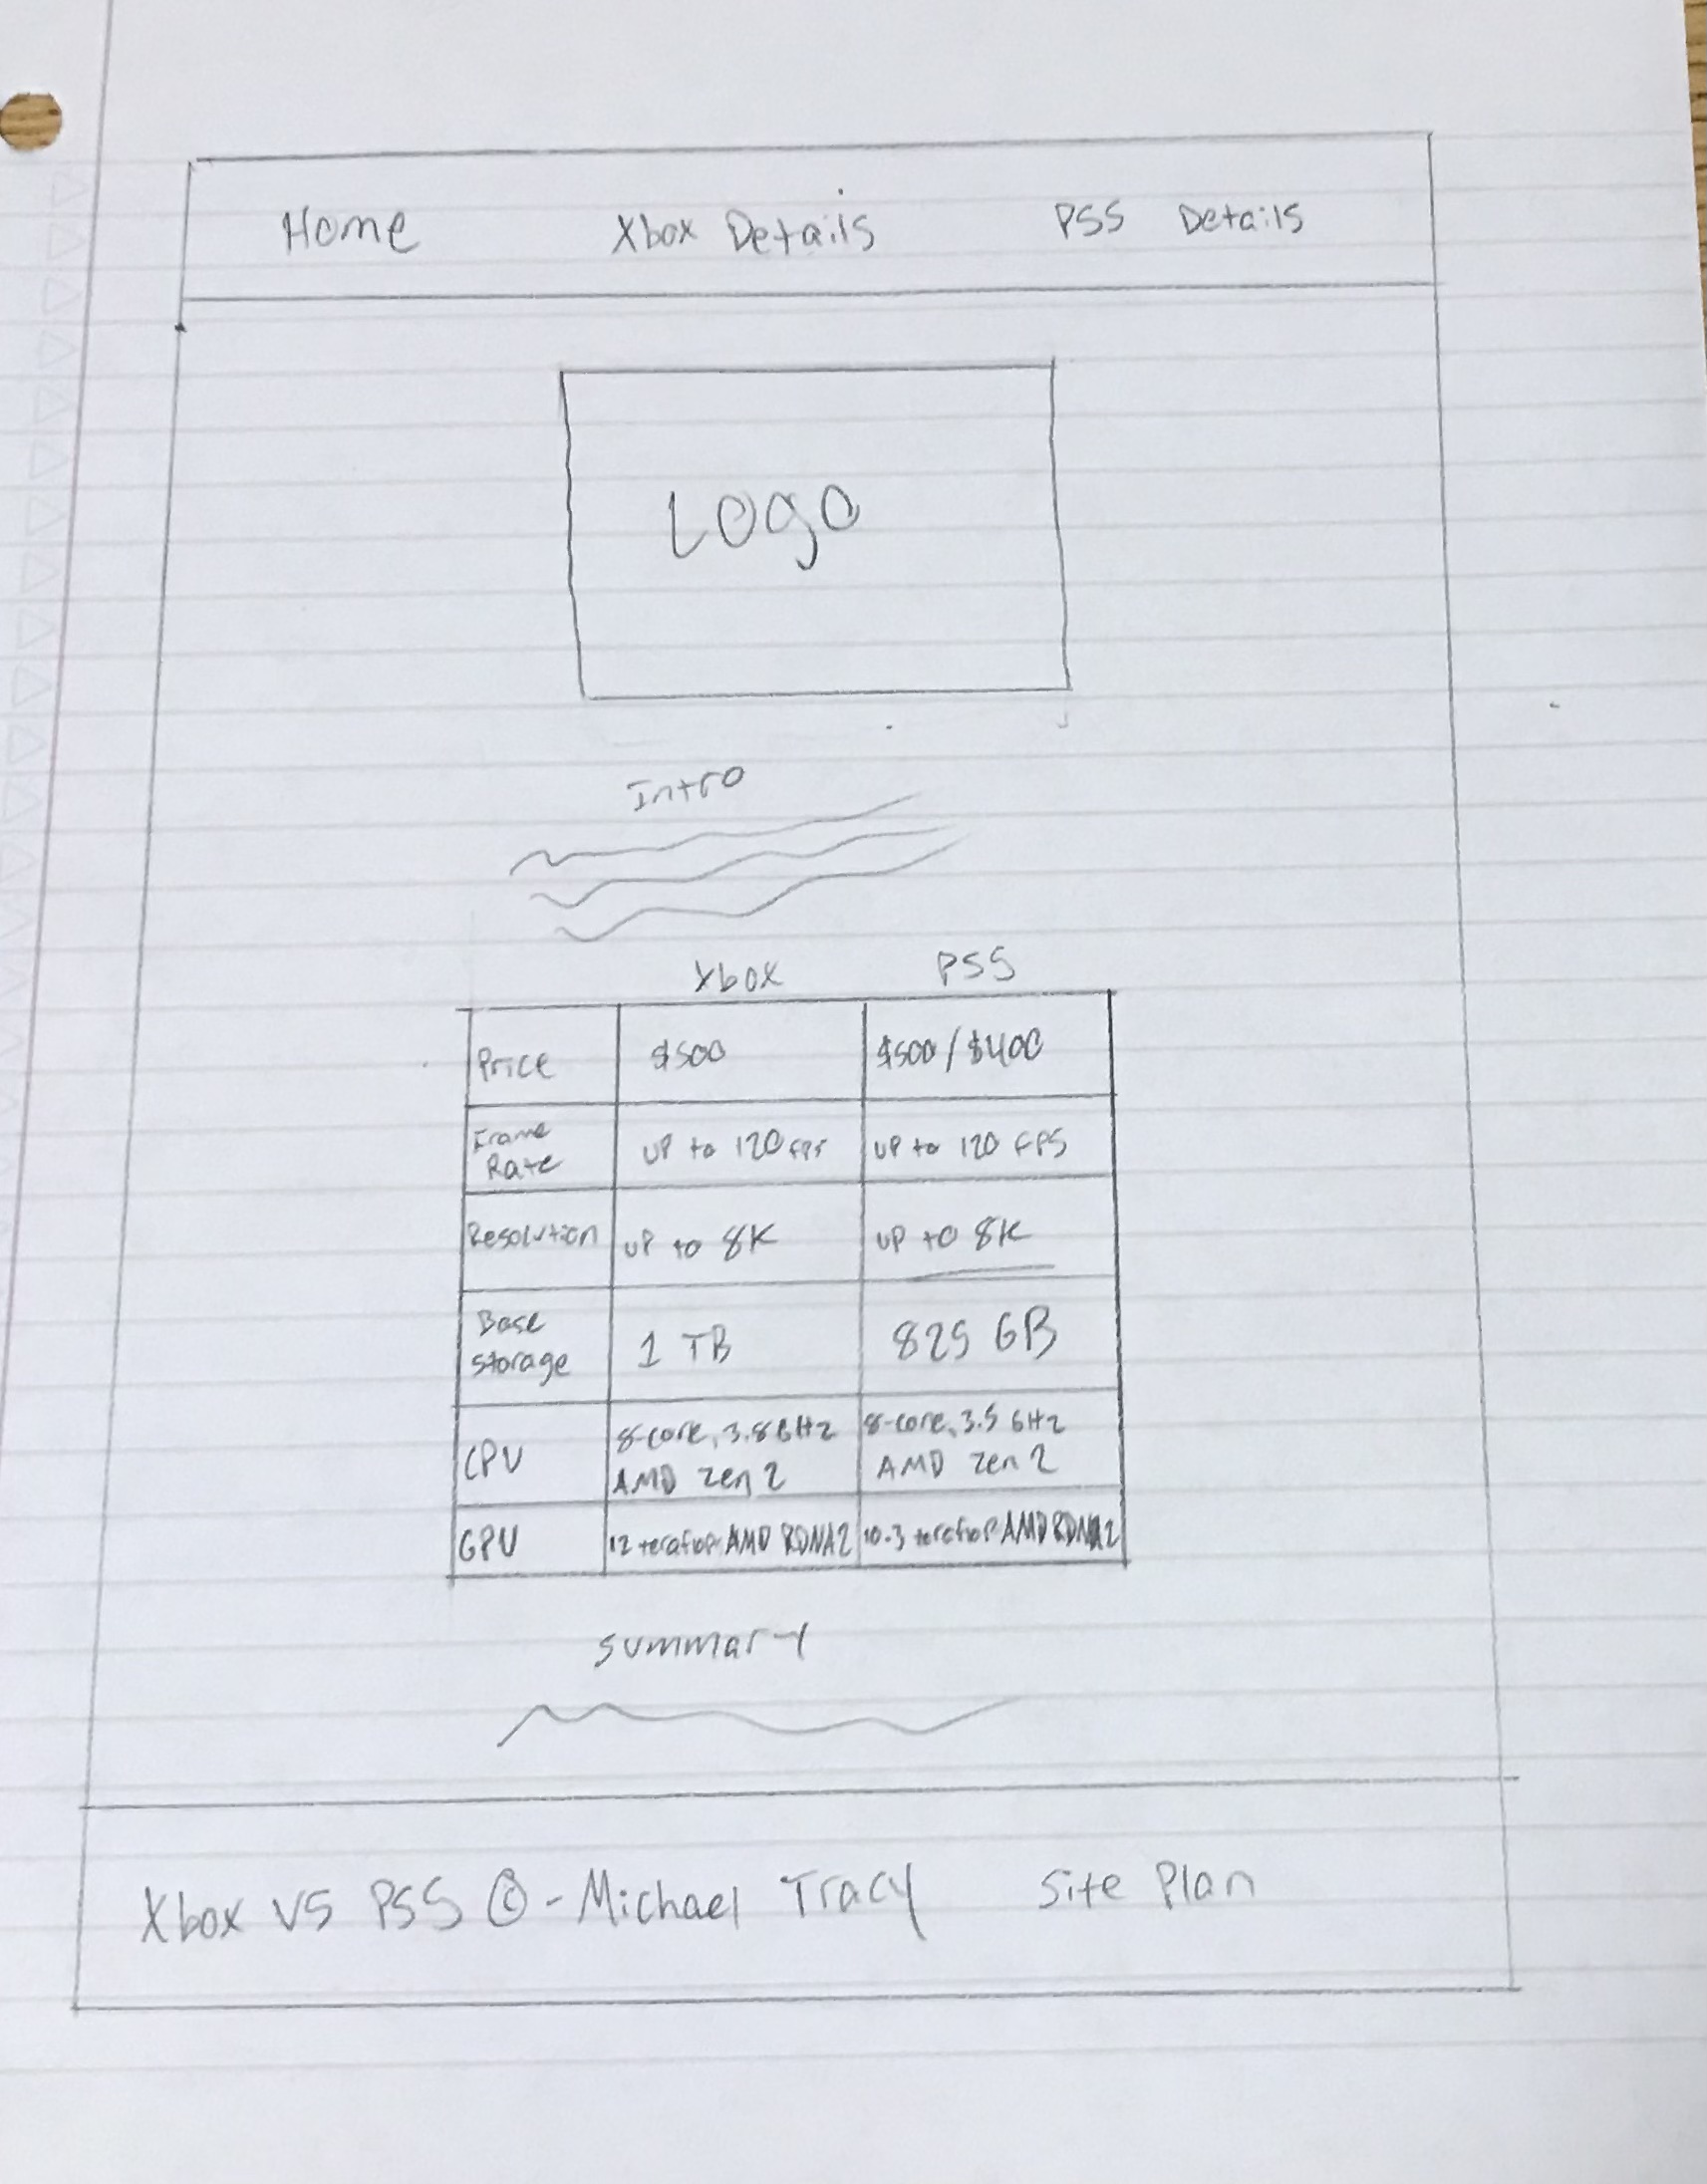 Home Xbox Details PS5 Details
Logo
Intro
Xbox PS5
Price $500 $500 / $400
Frame Rate up to 120 FPS up to 120 FPS
Resolution up to 8K up to 8K
Base Storage 1 TB 825 GB
CPU 8-core, 3.8 GHz AMD Zen 2 8-core, 3.5 GHz AMD Zen 2
GPU 12 teraflop AMD RDNA 2 10.3 teraflop AMD RDNA 2
Summary
Xbox VS PS5 © - Michael Tracy Site Plan